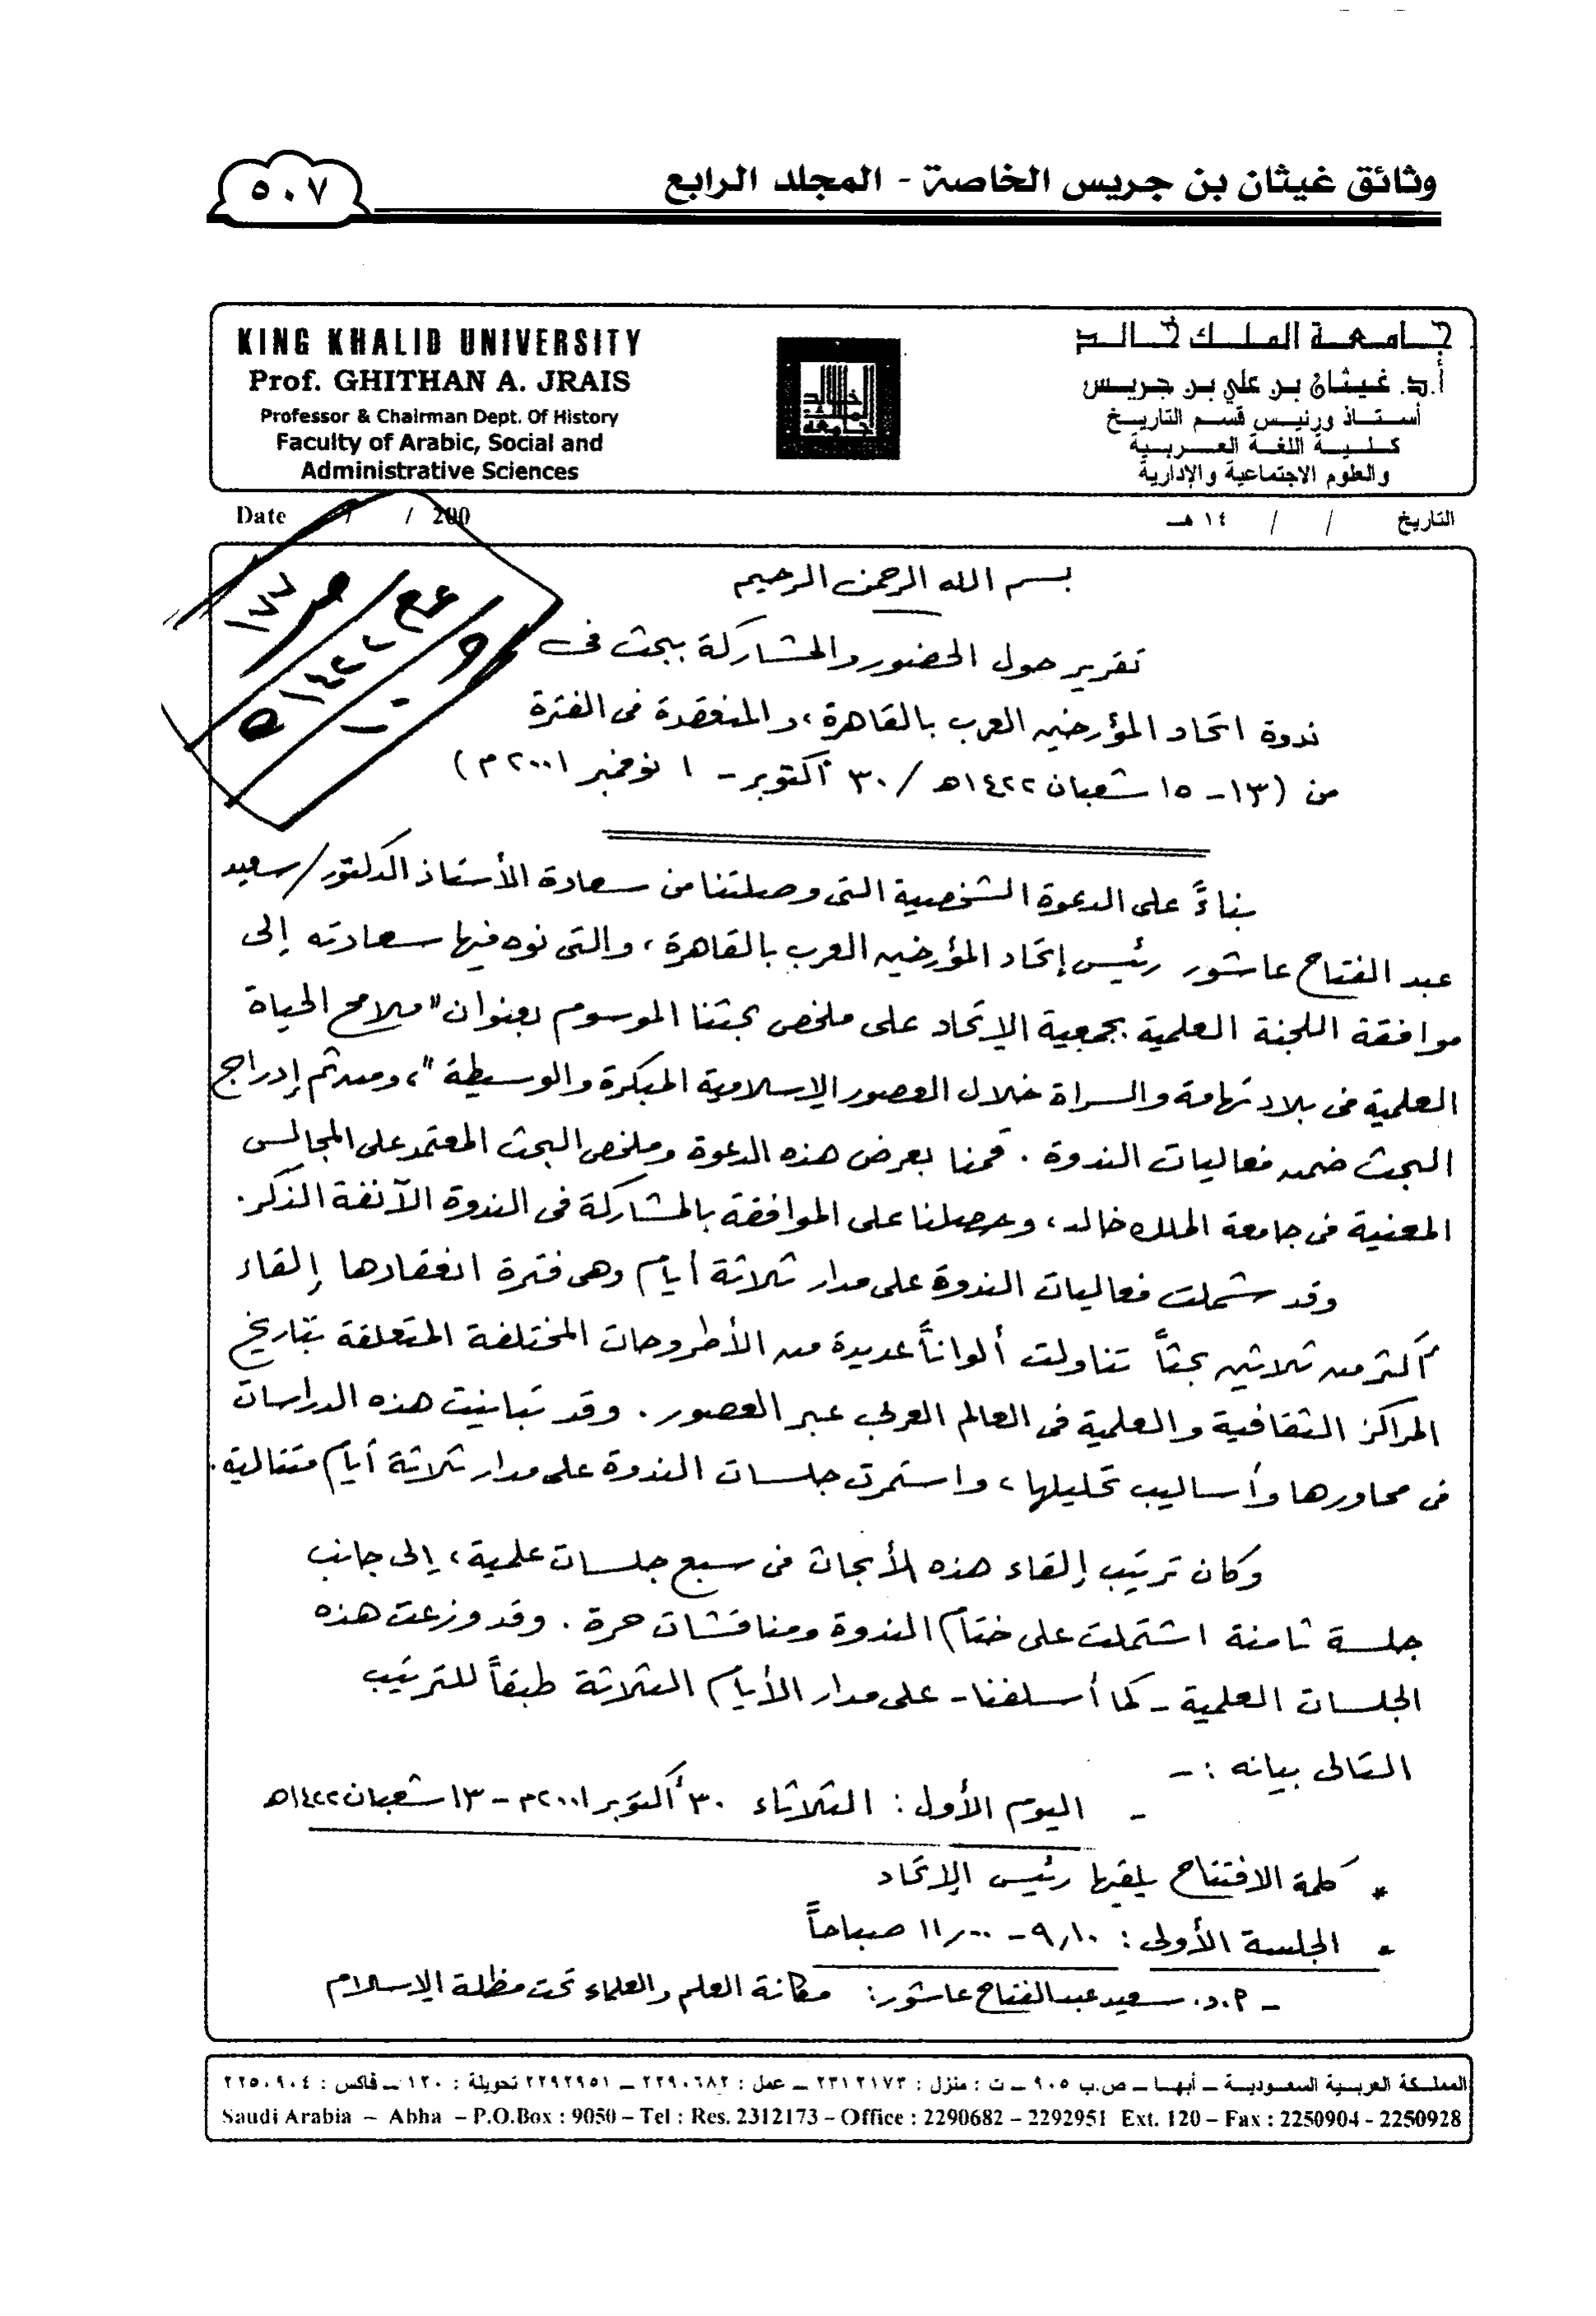 وثائق غيثان بن جريس الخاصة - المجلد الرابع
٥٠٧
جامعة الملك خالد
أ.د. غيثان بن علي بن جريس
أستاذ ورئيس قسم التاريخ
كلية اللغة العربية
والعلوم الاجتماعية والإدارية
KING KHALID UNIVERSITY
Prof. GHITHAN A. JRAIS
Professor & Chairman Dept. Of History
Faculty of Arabic, Social and
Administrative Sciences
التاريخ / / ١٤ هـ
Date / / 200
بسم الله الرحمن الرحيم
تقرير حول الحضور والمشاركة ببحث فى
ندوة اتحاد المؤرخين العرب بالقاهرة، والمنعقدة فى الفترة
من (١٣- ١٥ شعبان ١٤٢٢هـ / ٣٠ أكتوبر - ١ نوفمبر ٢٠٠١م)
بناءً على الدعوة الشخصية التى وصلتنا من سعادة الأستاذ الدكتور/ سعيد
عبد الفتاح عاشور رئيس إتحاد المؤرخين العرب بالقاهرة، والتى نوه فيها سعادته إلى
موافقة اللجنة العلمية بجمعية الإتحاد على ملخص بحثنا الموسوم بعنوان "ملامح الحياة
العلمية فى بلاد تهامة والسراة خلال العصور الإسلامية المبكرة والوسيطة"، ومن ثم إدراج
البحث ضمن فعاليات الندوة. قمنا بعرض هذه الدعوة وملخص البحث المعتمد على المجالس
المعنية فى جامعة الملك خالد، وحصلنا على الموافقة بالمشاركة فى الندوة الآنفة الذكر.
وقد شملت فعاليات الندوة على مدار ثلاثة أيام وهى فترة انعقادها إلقاء
أكثر من ثلاثين بحثاً تناولت ألواناً عديدة من الأطروحات المختلفة المتعلقة بتاريخ
المراكز الثقافية والعلمية فى العالم العربى عبر العصور. وقد تباينت هذه الدراسات
فى محاورها وأساليب تحليلها، واستمرت جلسات الندوة على مدار ثلاثة أيام متتالية.
وكان ترتيب إلقاء هذه الأبحاث فى سبع جلسات علمية، إلى جانب
جلسة ثامنة اشتملت على ختام الندوة ومناقشات حرة. وقد وزعت هذه
الجلسات العلمية - كما أسلفنا - على مدار الأيام الثلاثة طبقاً للترتيب
التالى بيانه :-
- اليوم الأول: الثلاثاء ٣٠ أكتوبر ٢٠٠١م - ١٣ شعبان ١٤٢٢هـ
* كلمة الافتتاح يلقيها رئيس الإتحاد
* الجلسة الأولى: ٩,١٠ - ١١,٠٠ صباحاً
- أ.د. سعيد عبد الفتاح عاشور: مكانة العلم والعلماء تحت مظلة الإسلام
المملكة العربية السعودية – أبها – ص.ب ٩٠٥ – ت : منزل : ٢٣١٢١٧٣ – عمل : ٢٢٩٠٦٨٢ – ٢٢٩٢٩٥١ تحويلة : ١٢٠ – فاكس : ٢٢٥٠٩٠٤
Saudi Arabia – Abha – P.O.Box : 9050 – Tel : Res. 2312173 – Office : 2290682 – 2292951 Ext. 120 – Fax : 2250904 - 2250928